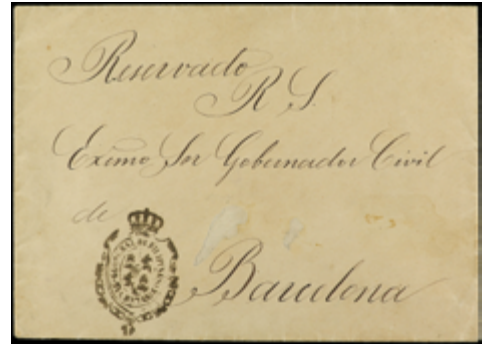 Reservado
R S.
Exmo Sor Gobernador Civil
de
Barcelona